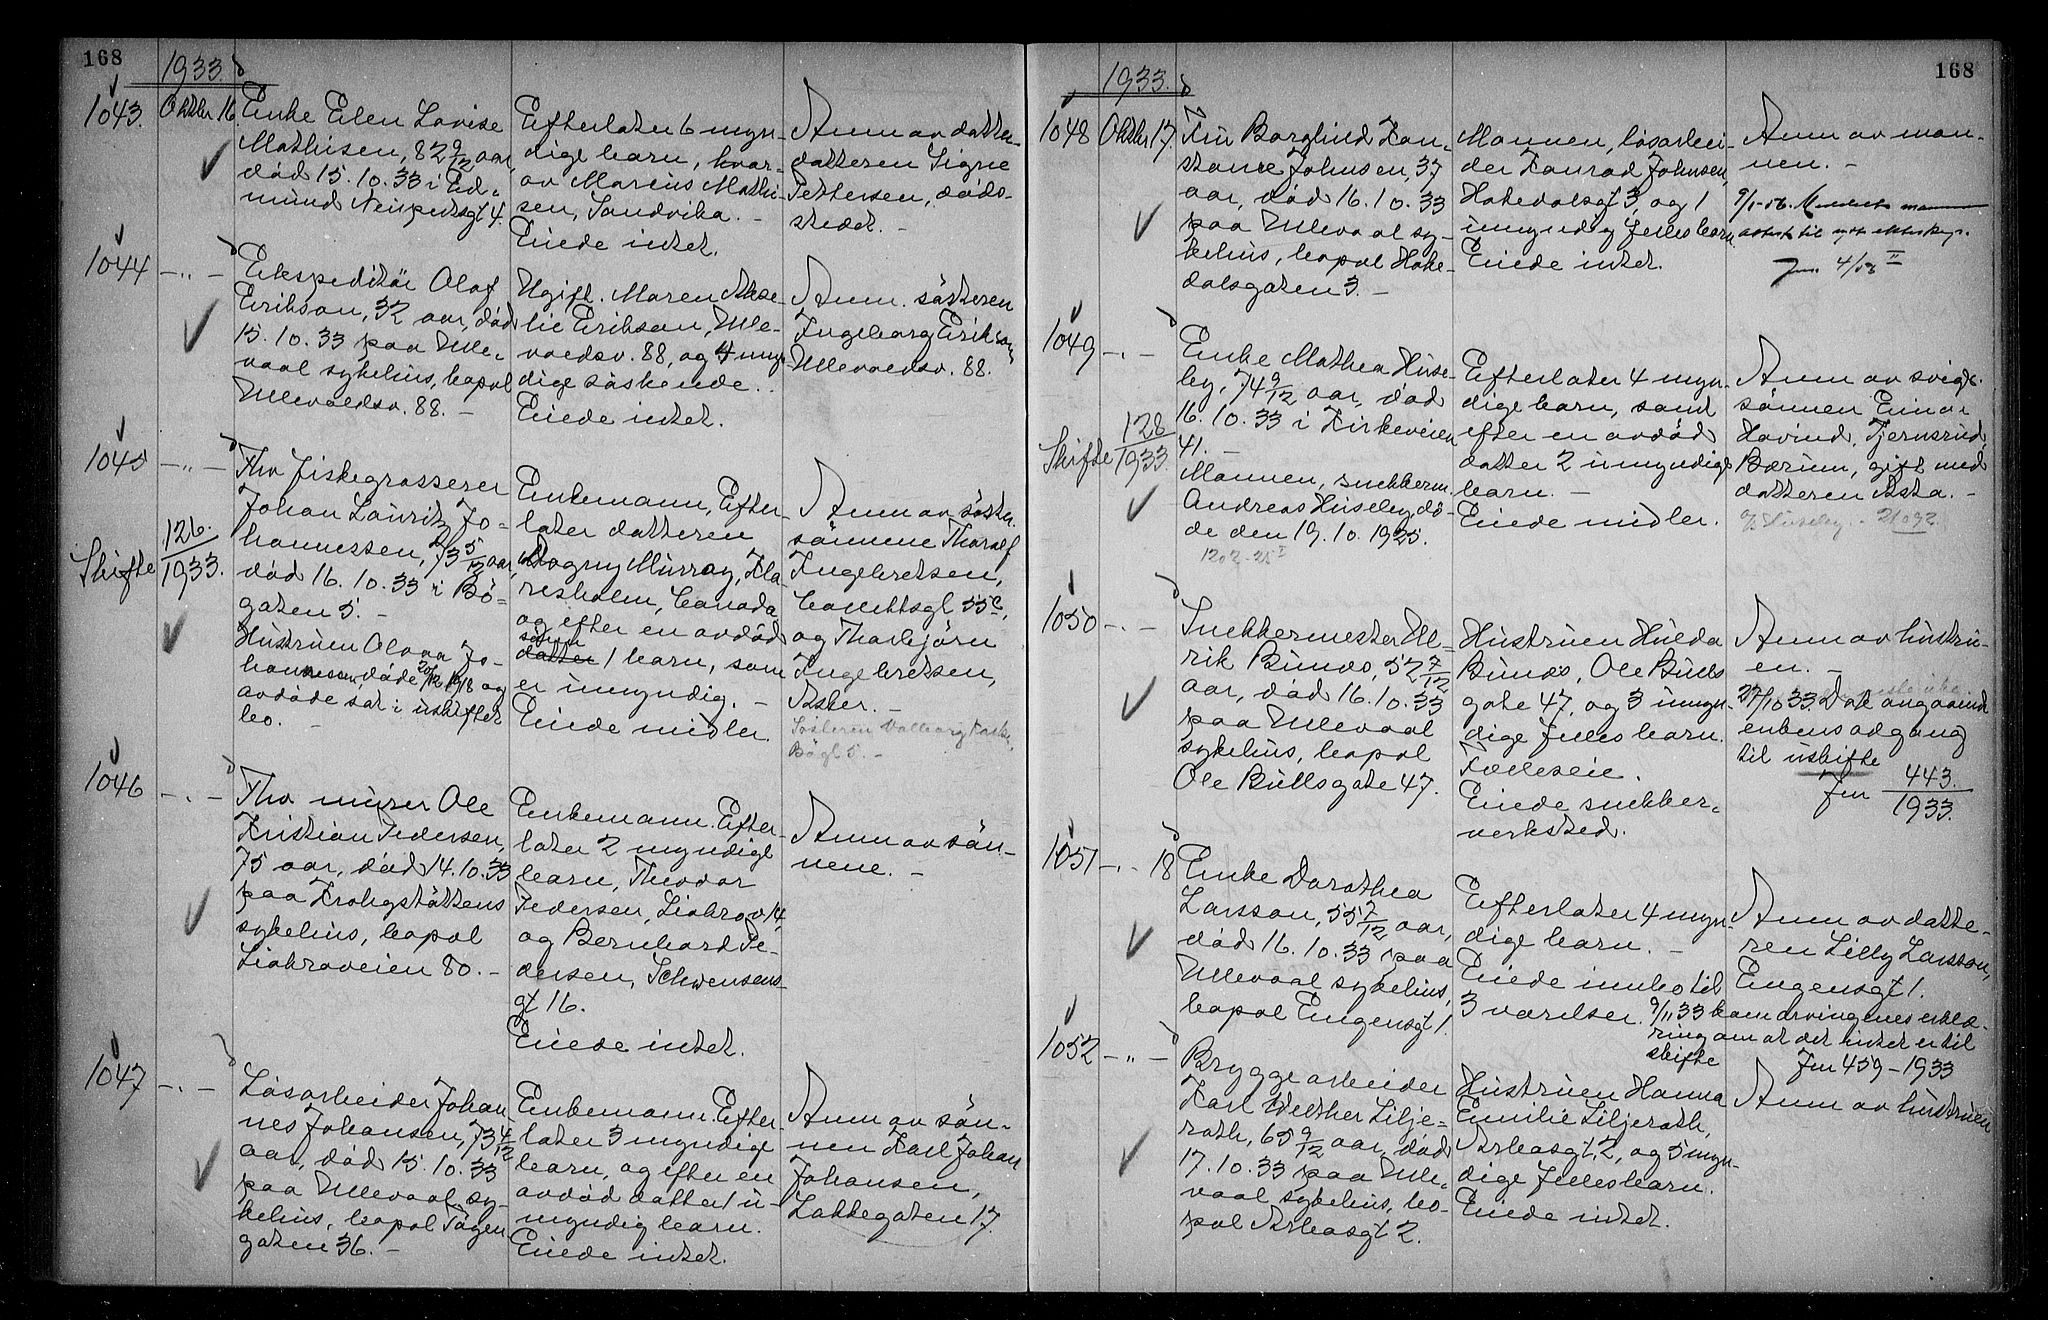 168
1933.
1043.
Oktbr 16.
Enke Elen Lovise
Mathisen, 82 9/12 aar,
død 15.10.33 i Ed-
mund Neupertsgt 4.
Efterlater 6 myn-
dige barn, hvor-
av Marius Mathi-
sen, Sandvika. -
Eiede intet.
Anm av datter-
datteren Signe
Pettersen, døds-
stedet. -
1044
-„-
Ekspeditør Olaf
Erikson, 32 aar, død
15.10.33 paa Ulle-
vaal sykehus, bopel
Ullevoldsv. 88. -
Ugift. Moren
lie Erikson, Ulle-
voldsv. 88, og 4 myn-
dige søskende.
Eiede intet.
Anm. søsteren
Ingeborg Erikson
Ullevoldsv. 88.
1045
-„-
Skifte 126./1933.
Fhv fiskegrosserer
Johan Lauritz Jo-
hannessen, 73 5/12 aar,
død 16.10.33 i Bö-
gaten 5. -
Hustruen Olava Jo-
hannessen døde 20/12 1918 og
avdøde sat i uskiftet
bo. -
Enkemann, Efter-
later datteren
Dagny Murray, Kla-
resholm, Canada
og efter en avdød
sønn
datter 1 barn, som
er umyndig. -
Eiede midler.
Anm av søster-
sønnene Thoralf
Ingebretsen,
Collettsgt 55c,
og Thorbjørn
Ingebretsen,
Asker. -
Søsteren Valborg
Bögt 5. -
1046
-„-
Fhv murer Ole
Kristian Pedersen,
75 aar, død 14.10.33
paa Krohgstøttens
sykehus, bopel
Ljabroveien 80. -
Enkemann. Efter-
later 2 myndige
barn, Theodor
Pedersen, Ljabrov 14,
og Bernhard Pe-
dersen, Schwensens-
gt 16.
Eiede intet.
Anm av søn-
nene. -
1047
-„-
Løsarbeider Johan
nes Johansen, 73 4/12
aar, død 15.10.33
paa Ullevaal sy-
kehus, bopel Tøyen
gaten 36. -
Enkemann. Efter-
later 3 myndige
barn, og efter en
avdød datter 1 u-
myndig barn.
Eiede intet.
Anm av søn-
nen Karl Johan
Johansen,
Lakkegaten 17.
168
1933.
1048
Oktbr 17.
Fru Borghild Kon-
stance Johnsen, 37
aar, død 16.10.33
paa Ullevaal sy-
kehus, bopel Hake-
dalsgaten 3. -
Mannen, løsarbei-
der Konrad Johnsen,
Hakedalsgt 3, og 1
umyndig fellesbarn
Eiede intet.
Anm av man-
nen. -
9/1-56.
attest til nytt ekteskap.
Jnr. 4/56 II
1049
-„-
Skifte 128/1933.
Enke Mathea Huse-
by, 74 9/12 aar, død
16.10.33 i Kirkeveien
41. -
Mannen, snekkerm.
Andreas Huseby dø-
de den 19.10.1925.
1202-25 I
Efterlater 4 myn-
dige barn, samt
efter en avdød
datter 2 umyndige
barn. -
Eiede midler.
Anm av svige-
sønnen Einar
Hovind, Tjernsrud,
Bærum, gift med
datteren Asta. -
Huseby. - 21092.
1050
-„-
Snekkermester Ul-
rik Bunæs, 52 7/12
aar, død 16.10.33
paa Ullevaal
sykehus, bopel
Ole Bullsgate 47.
Hustruen Hulda
Bunæs, Ole Bulls
gate 47, og 3 umyn-
dige fellesbarn.
Felleseie.
Eiede snekker-
verksted.
Anm av hustru-
en. -
27/10 33. Dok angaaende
enkens adgang
til uskifte
Jnr 443./1933.
1051
-„- 18
Enke Dorothea
Larsson, 55 7/12 aar,
død 16.10.33 paa
Ullevaal sykehus,
bopel Eugensgt 1.
Efterlater 4 myn-
dige barn. -
Eiede innbo til
3 værelser.
Anm av datte-
ren Lilly Larsson,
Eugensgt 1.
9/11 33 kom arvingenes erklæ-
ring om at det intet er til
skifte
Jnr 459-1933
1052
-„-
Bryggearbeider
Karl Welther Lilje-
roth, 65 9/12 aar, død
17.10.33 paa Ulle-
vaal sykehus, bo-
pel Asbosgt 2.
Hustruen Hanna
Emilie Liljeroth,
Asbosgt 2, og 5 myn-
dige fellesbarn.
Eiede intet.
Anm av hustruen